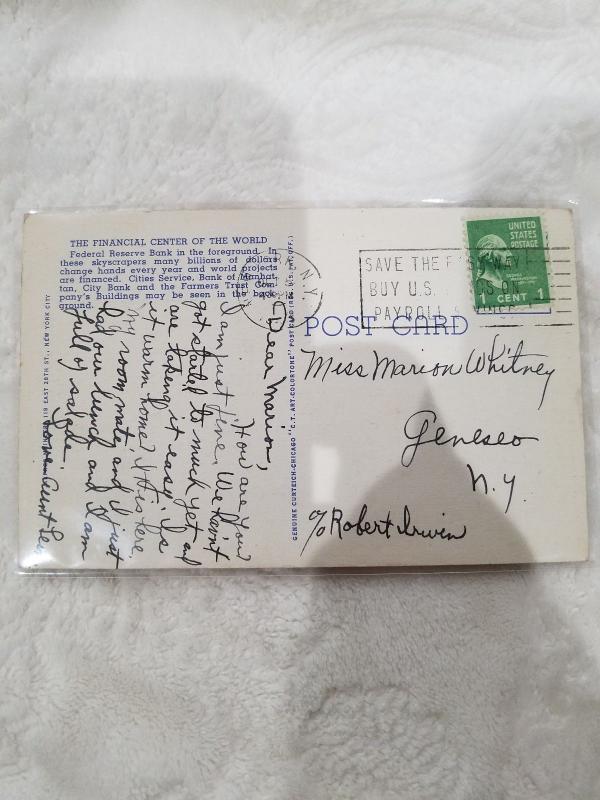 THE FINANCIAL CENTER OF THE WORLD
Federal Reserve Bank in the foreground. In
these skyscrapers many billions of dollars
change hands every year and world projects
are financed. Cities Service, Bank of Manhat-
tan, City Bank and the Farmers Trust Com-
pany's Buildings may be seen in the back-
ground.
N.Y.
SAVE THE EASY WAY
BUY U.S. BONDS ON
PAYROLL SAVINGS
UNITED
STATES
POSTAGE
1 CENT 1
POST CARD
Dear Marion,
How are you
I am just fine. We haint
got started to much yet and
are taking it easy. Is
it warm home? It is here.
My room mate and I just
had our lunch and I am
full of salad.
Love Aunt
118 EAST 28TH ST., NEW YORK CITY
GENUINE CURTEICH-CHICAGO "C.T. ART-COLORTONE" POST CARD (REG. U.S. PAT. OFF.)
Miss Marion Whitney
Geneseo
N.Y.
c/o Robert Irwin